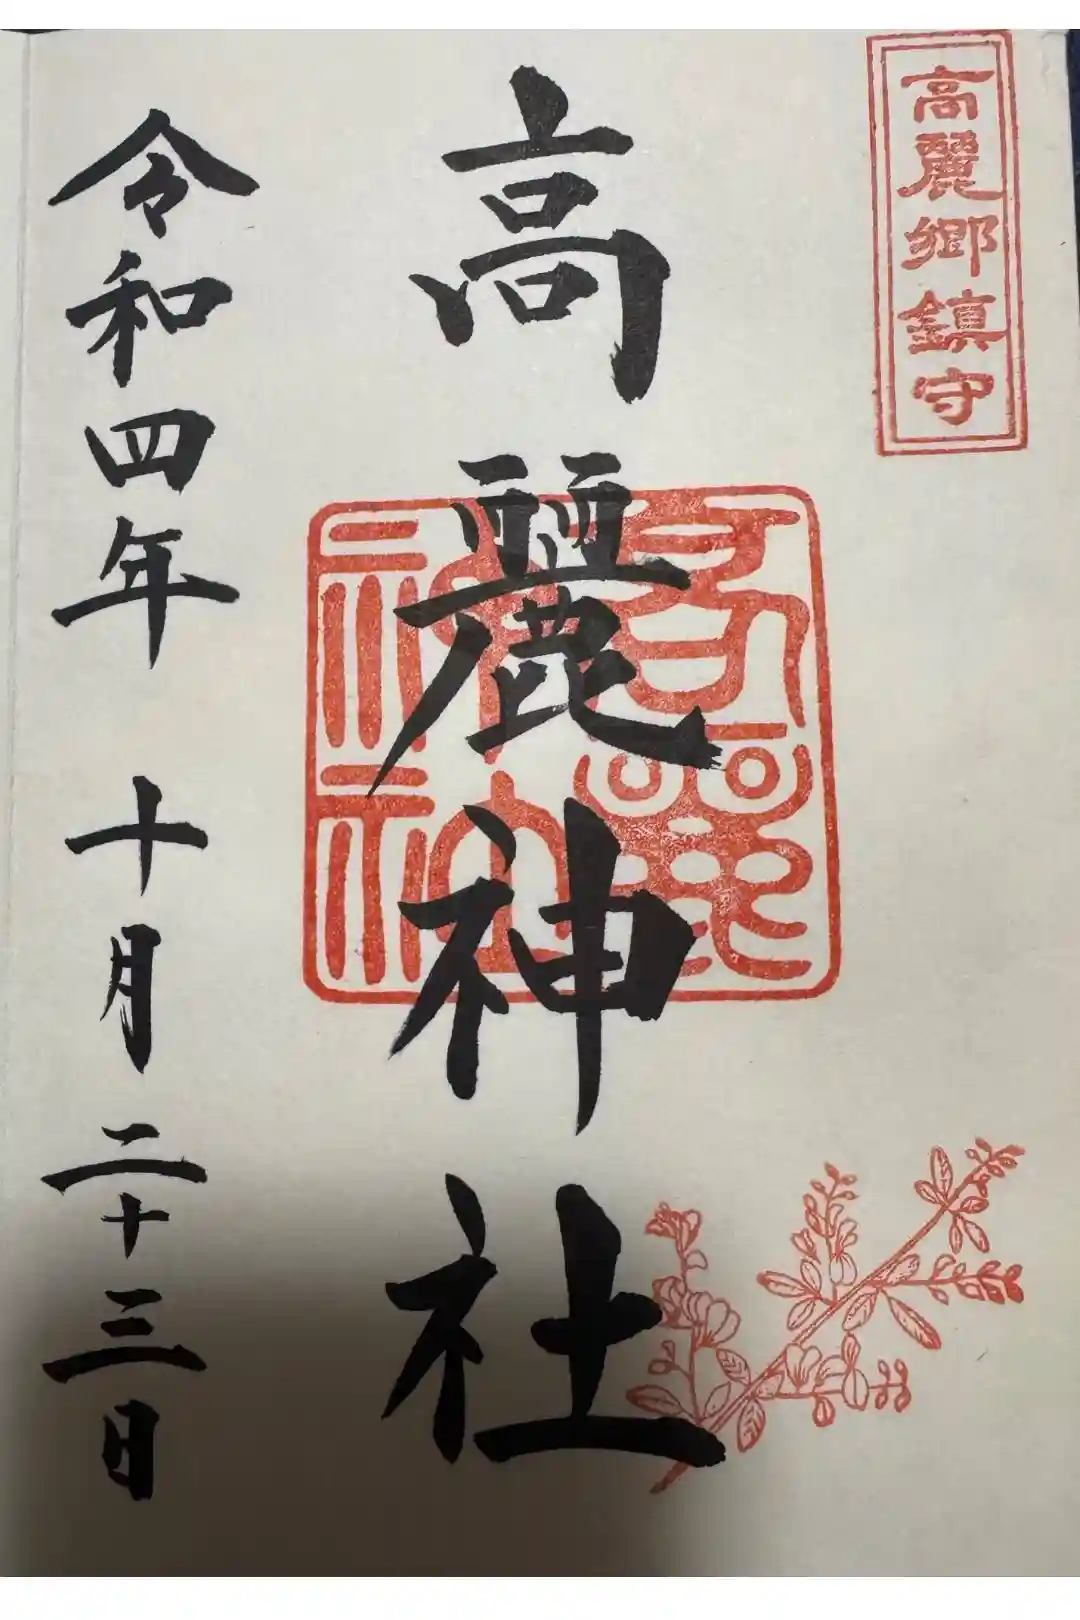 高麗郷鎮守
高麗神社
高麗
神社
令和四年 十月二十三日